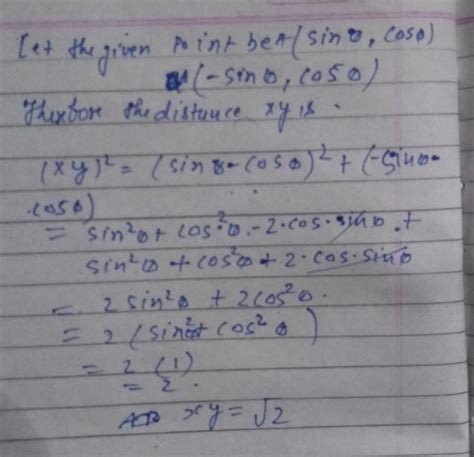 Let the given point be A (sin θ, cos θ)
(-sin θ, cos θ)
Therfore the distance xy is .
(xy)² = (sin θ - cos θ)² + (-sin θ -
cos θ)
= sin²θ + cos²θ - 2·cos·sinθ +
sin²θ + cos²θ + 2·cos·sinθ
= 2 sin²θ + 2cos²θ.
= 2 (sin² + cos²θ)
= 2 (1)
= 2.
xy = √2